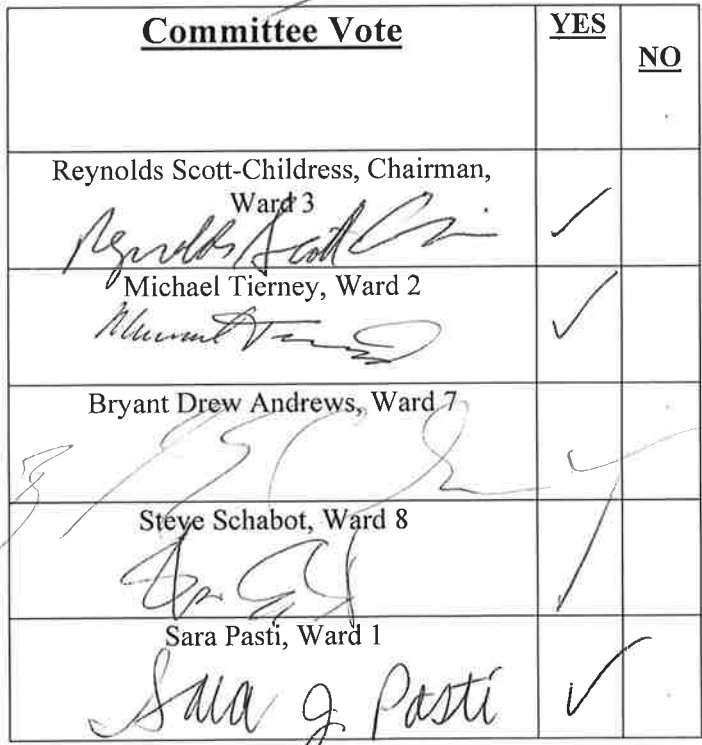 Committee Vote
YES
NO
Reynolds Scott-Childress, Chairman,
Ward 3
Reynolds Scott
Michael Tierney, Ward 2
Bryant Drew Andrews, Ward 7
Steve Schabot, Ward 8
Sara Pasti, Ward 1
Sara J. Pasti